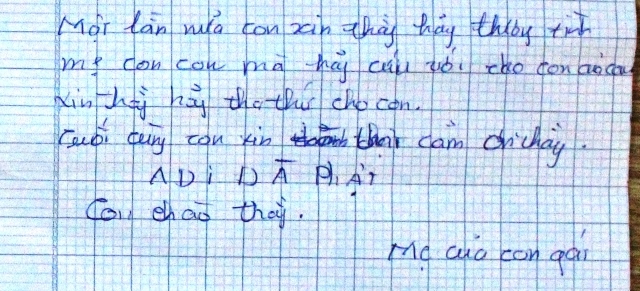 Một lần nữa con xin thầy hãy thương tình
mẹ con con mà hãy cứu với cho con
xin thầy hãy tha thứ cho con.
Cuối cùng con xin cảm ơn thầy.
A Di Đà Phật
Con chào thầy.
Mẹ của con gái